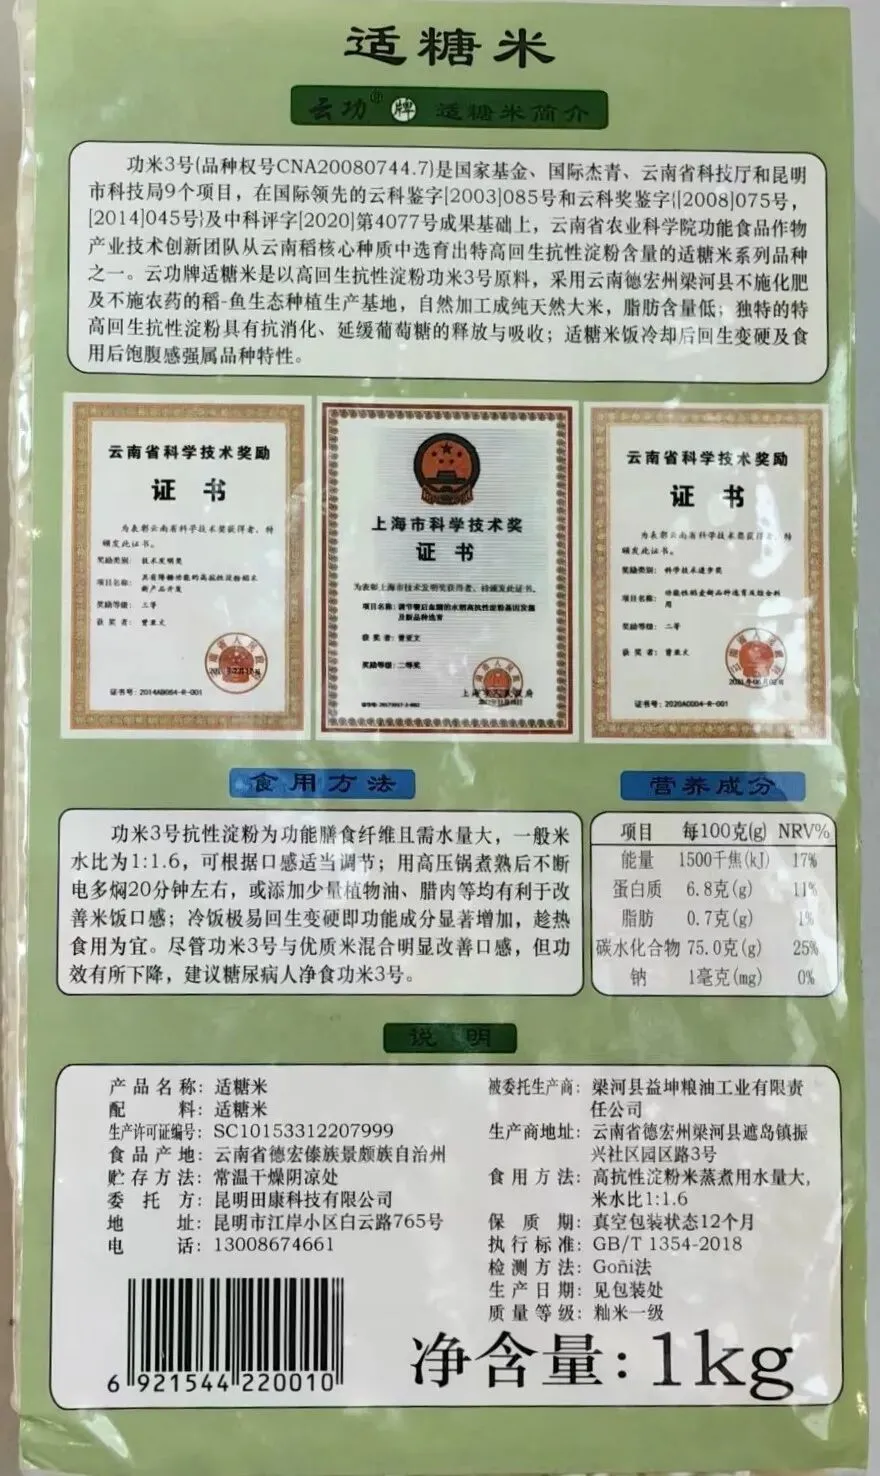 适糖米
云功®牌 适糖米简介
功米3号(品种权号CNA20080744.7)是国家基金、国际杰青、云南省科技厅和昆明
市科技局9个项目，在国际领先的云科鉴字[2003]085号和云科奖鉴字{[2008]075号，
[2014]045号}及中科评字[2020]第4077号成果基础上，云南省农业科学院功能食品作物
产业技术创新团队从云南稻核心种质中选育出特高回生抗性淀粉含量的适糖米系列品种
之一。云功牌适糖米是以高回生抗性淀粉功米3号原料，采用云南德宏州梁河县不施化肥
及不施农药的稻-鱼生态种植生产基地，自然加工成纯天然大米，脂肪含量低；独特的特
高回生抗性淀粉具有抗消化、延缓葡萄糖的释放与吸收；适糖米饭冷却后回生变硬及食
用后饱腹感强属品种特性。
云南省科学技术奖励
证书
为表彰云南省科学技术奖获得者，特
颁发此证书。
奖励类别：技术发明奖
项目名称：具有降糖功能的高抗性淀粉稻米
新产品开发
奖励等级：三等
获奖者：曾亚文
证书号：2014AB064-R-001
上海市科学技术奖
证书
为表彰上海市技术发明奖获得者，特颁发此证书。
项目名称：调节餐后血糖的水稻高抗性淀粉基因发掘
及新品种选育
获奖者：曾亚文
奖励等级：二等奖
上海市人民政府
云南省科学技术奖励
证书
为表彰云南省科学技术奖获得者，特
颁发此证书。
奖励类别：科学技术进步奖
项目名称：功能性稻麦新品种选育及综合利
用
奖励等级：二等
获奖者：曾亚文
证书号：2020AC004-R-001
食用方法
功米3号抗性淀粉为功能膳食纤维且需水量大，一般米
水比为1:1.6，可根据口感适当调节；用高压锅煮熟后不断
电多焖20分钟左右，或添加少量植物油、腊肉等均有利于改
善米饭口感；冷饭极易回生变硬即功能成分显著增加，趁热
食用为宜。尽管功米3号与优质米混合明显改善口感，但功
效有所下降，建议糖尿病人净食功米3号。
营养成分
项目 每100克(g) NRV%
能量 1500千焦(kJ) 17%
蛋白质 6.8克(g) 11%
脂肪 0.7克(g) 1%
碳水化合物 75.0克(g) 25%
钠 1毫克(mg) 0%
说明
产品名称：适糖米
配料：适糖米
生产许可证编号：SC10153312207999
食品产地：云南省德宏傣族景颇族自治州
贮存方法：常温干燥阴凉处
委托方：昆明田康科技有限公司
地址：昆明市江岸小区白云路765号
电话：13008674661
6 921544 220010
被委托生产商：梁河县益坤粮油工业有限责
任公司
生产商地址：云南省德宏州梁河县遮岛镇振
兴社区园区路3号
食用方法：高抗性淀粉米蒸煮用水量大，
米水比1:1.6
保质期：真空包装状态12个月
执行标准：GB/T 1354-2018
检测方法：Goñi法
生产日期：见包装处
质量等级：籼米一级
净含量：1kg